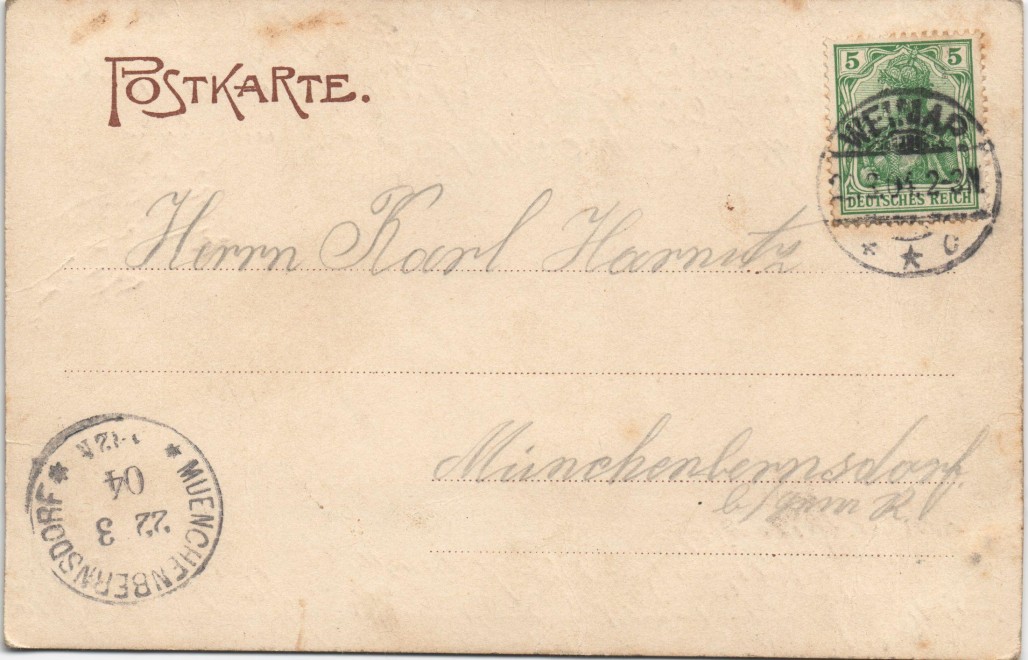 POSTKARTE.
5 5
DEUTSCHES REICH
WEIMAR.
3.04. 2-3N.
* * c
Herrn Karl Harnitz
Münchenbernsdorf
* MUENCHENBERNSDORF *
22 3
04
-12N